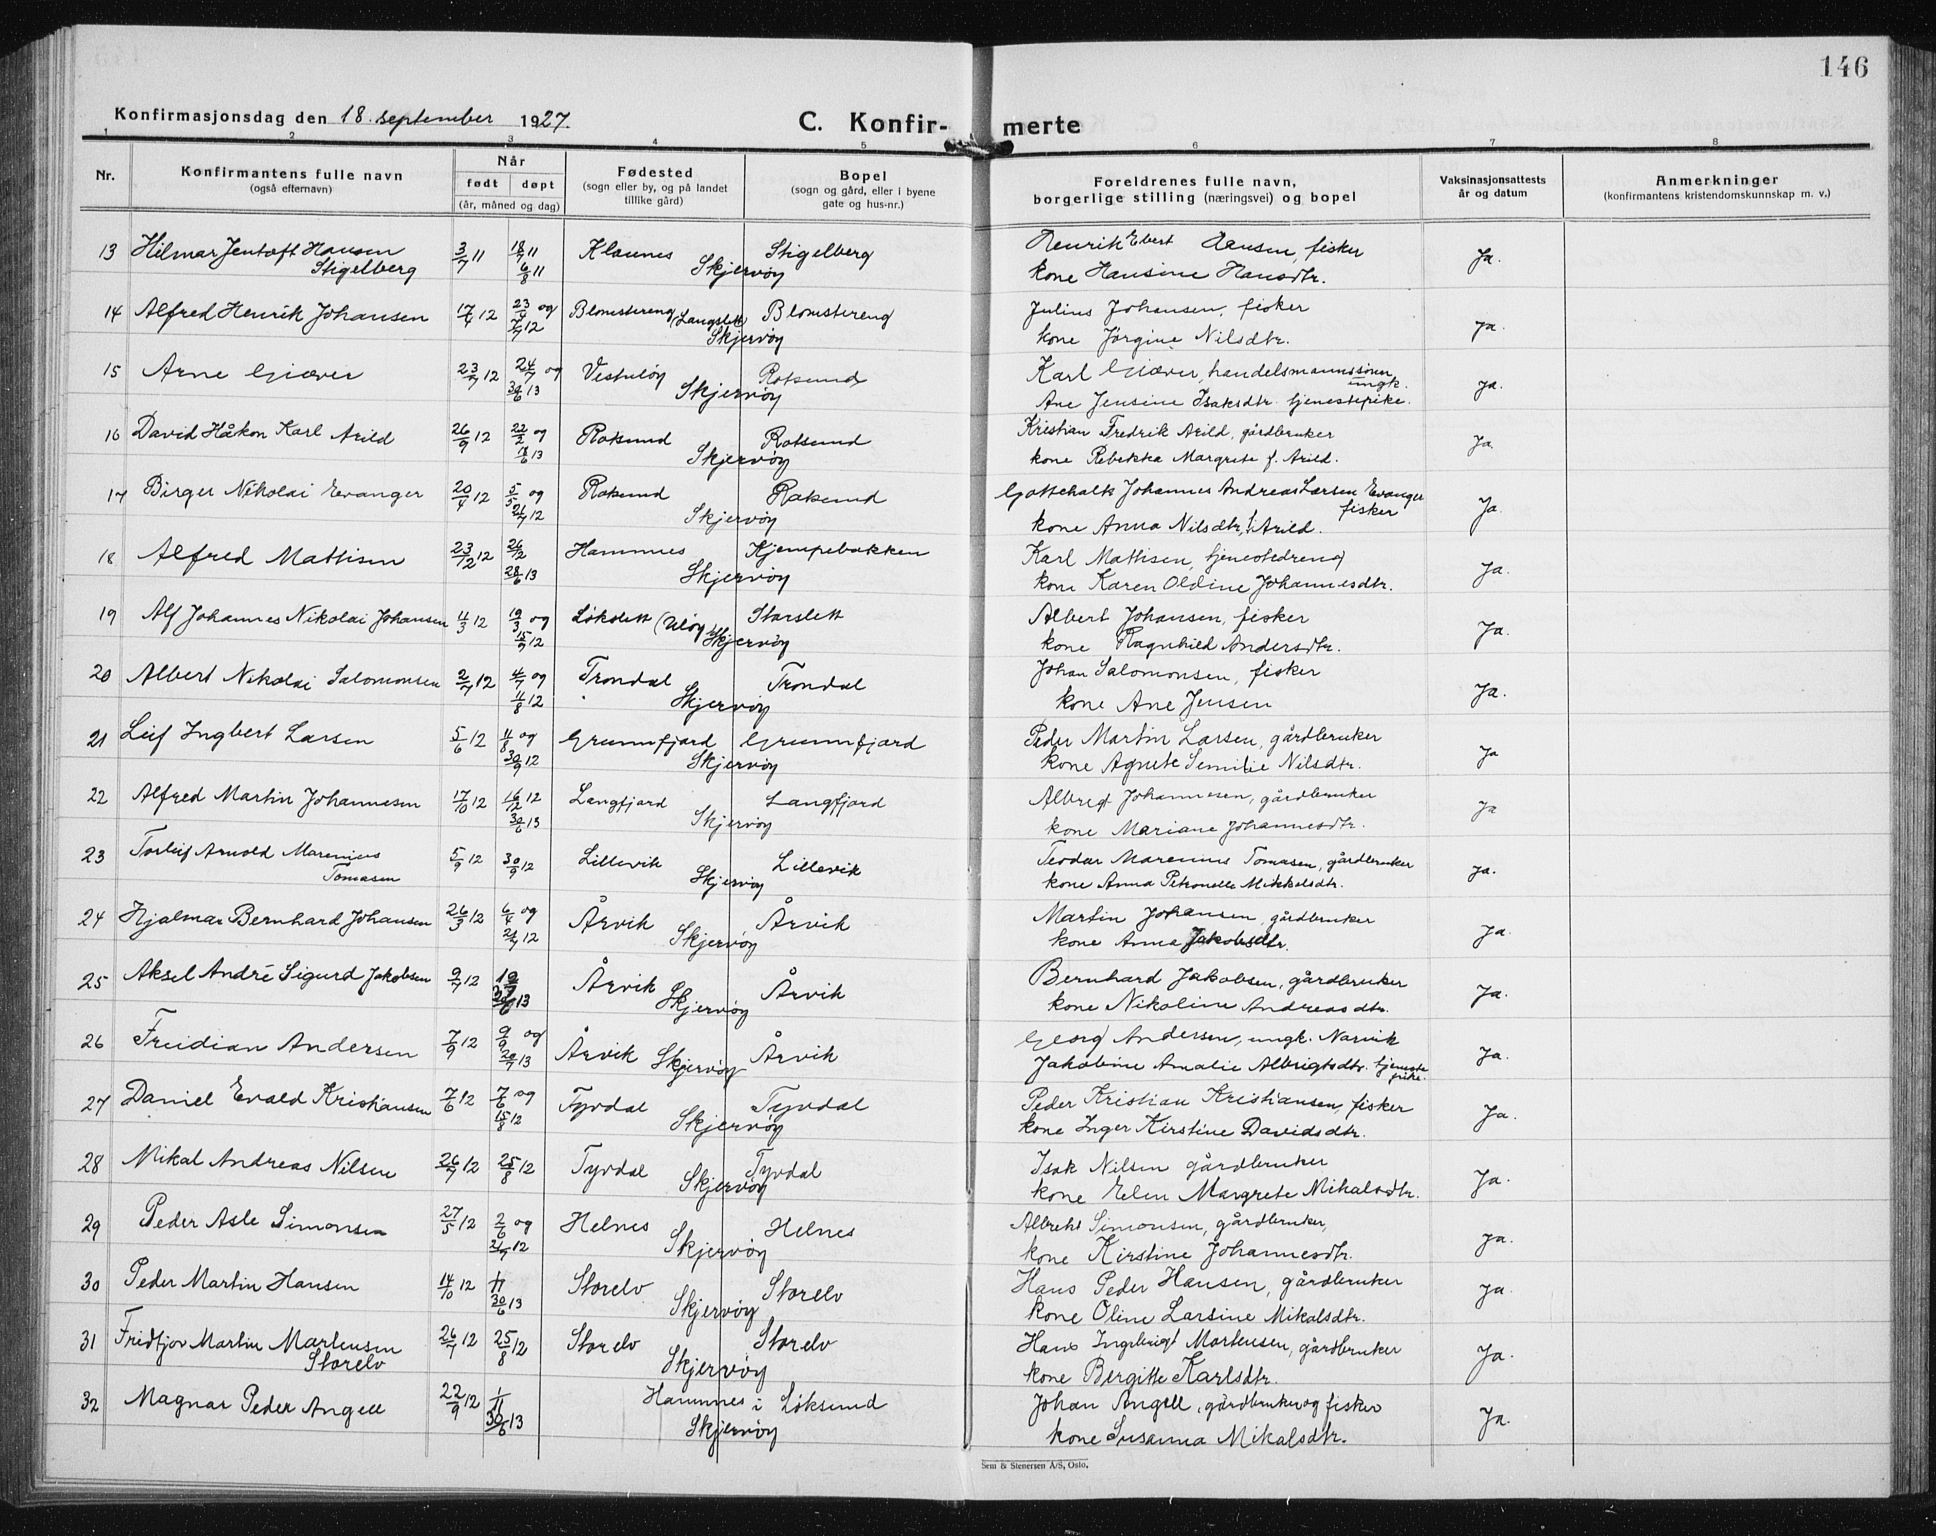 146
Konfirmasjonsdag den 18. september 1927.
C. Konfir- merte
1 2 3 4 5 6 7 8
Nr. Konfirmantens fulle navn (også efternavn) Når født døpt (år, måned og dag) Fødested (sogn eller by, og på landet tillike gård) Bopel (sogn og gård, eller i byene gate og hus-nr.) Foreldrenes fulle navn, borgerlige stilling (næringsvei) og bopel Vaksinasjonsattests år og datum Anmerkninger (konfirmantens kristendomskunnskap m. v.)
13 Hilmar Jentoft Hansen 3/7 11 18/7 11 Klaunes Stigelberg Henrik Ebert Hansen, fisker Ja.
Stigelberg 6/8 11 Skjervöy kone Hansine Hansdtr.
14 Alfred Henrik Johansen 17/4 12 23/4 og Blomstereng (Langslett) Blomstereng Julius Johansen, fisker Ja.
7/7 12 Skjervöy kone Jörgine Nilsdtr.
15 Arne Giæver 23/7 12 24/7 og Rotsund Karl Giæver, handelsmannssönn ungk. Ja.
30/6 13 Skjervöy Ane Jensine Isaksdtr. tjenestepike.
16 David Håkon Karl Arild 26/9 12 22/2 og Rotsund Rotsund Kristian Fredrik Arild, gårdbruker Ja.
18/6 13 Skjervöy kone Rebekka Margrete f. Arild.
17 Birger Nikolai Evanger 20/4 12 5/5 og Rotsund Rotsund Gottschalk Johannes Andreas Larsen Evanger fisker Ja
21/7 12 Skjervöy kone Anna Nilsdtr, f. Arild.
18 Alfred Mattisen 23/12 12 26/2 Hamnes Kjempebakken Karl Mattisen, tjenestedreng Ja.
28/6 13 Skjervöy kone Karen Oldine Johannesdtr.
19 Alf Johannes Nikolai Johansen 11/3 12 19/3 og Løkslett (Uløy) Storslett Albert Johansen, fisker Ja.
15/9 12 Skjervöy kone Ragnhild Andersdtr.
20 Albert Nikolai Salomonsen 2/7 12 4/7 og Trondal Trondal Johan Salomonsen, fisker Ja.
11/8 12 Skjervöy kone Ane Jensen
21 Leif Ingbert Larsen 5/6 12 11/8 og Grunnfjord Grunnfjord Peder Martin Larsen, gårdbruker Ja
30/9 12 Skjervöy kone Agnete Semilie Nilsdtr.
22 Alfred Martin Johannesen 17/10 12 16/12 12 Langfjord Langfjord Albregt Johannesen, gårdbruker Ja
30/6 13 Skjervöy kone Mariane Johannesdtr.
23 Torleif Arnold Marenius 5/9 12 30/9 12 Lillevik Lillevik Teodor Marenius Tomasen, gårdbruker Ja.
Tomasen Skjervöy kone Anna Petronelle Mikkelsdtr.
24 Hjalmar Bernhard Johansen 26/3 12 6/4 og Årvik Årvik Martin Johansen, gårdbruker Ja.
21/7 12 Skjervöy kone Anna Jakobsdtr.
25 Aksel André Sigurd Jakobsen 9/7 12 Årvik Årvik Bernhard Jakobsen, gårdbruker Ja.
Skjervöy kone Nikoline Andreasdtr.
26 Fridian Andersen 7/9 12 9/9 og Årvik Årvik Georg Andersen, ungk. Narvik Ja.
20/7 13 Skjervöy Jakobine Amalie Albrigtsdtr. tjenestepike.
27 Daniel Evald Kristiansen 7/6 12 7/6 og Tyvdal Tyvdal Peder Kristian Kristiansen, fisker Ja.
15/8 12 Skjervöy kone Inger Kirstine Davidsdtr.
28 Mikal Andreas Nilsen 26/7 12 25/8 12 Tyvdal Tyvdal Isak Nilsen gårdbruker Ja.
Skjervöy kone Elen Margrete Mikalsdtr.
29 Peder Asle Simonsen 27/5 12 2/6 og Helnes Helnes Albrekt Simonsen, gårdbruker, Ja.
21/7 12 Skjervöy kone Kirstine Johannesdtr.
30 Peder Martin Hansen 14/10 12 1/11 Storelv Storelv Hans Peder Hansen, gårdbruker Ja.
30/6 13 Skjervöy kone Oline Larsine Mikalsdtr.
31 Fridtjov Martin Mortensen 26/7 12 25/8 12 Storelv Storelv Hans Ingebrigt Mortensen, gårdbruker Ja.
Storelv Skjervöy kone Birgitte Karlsdtr.
32 Magnar Peder Angell 22/9 12 1/11 Hamnes i Løksund Johan Angell, gårdbruker og fisker Ja.
30/6 13 Skjervöy kone Susanna Mikalsdtr.
Sem & Stenersen A/S, Oslo.